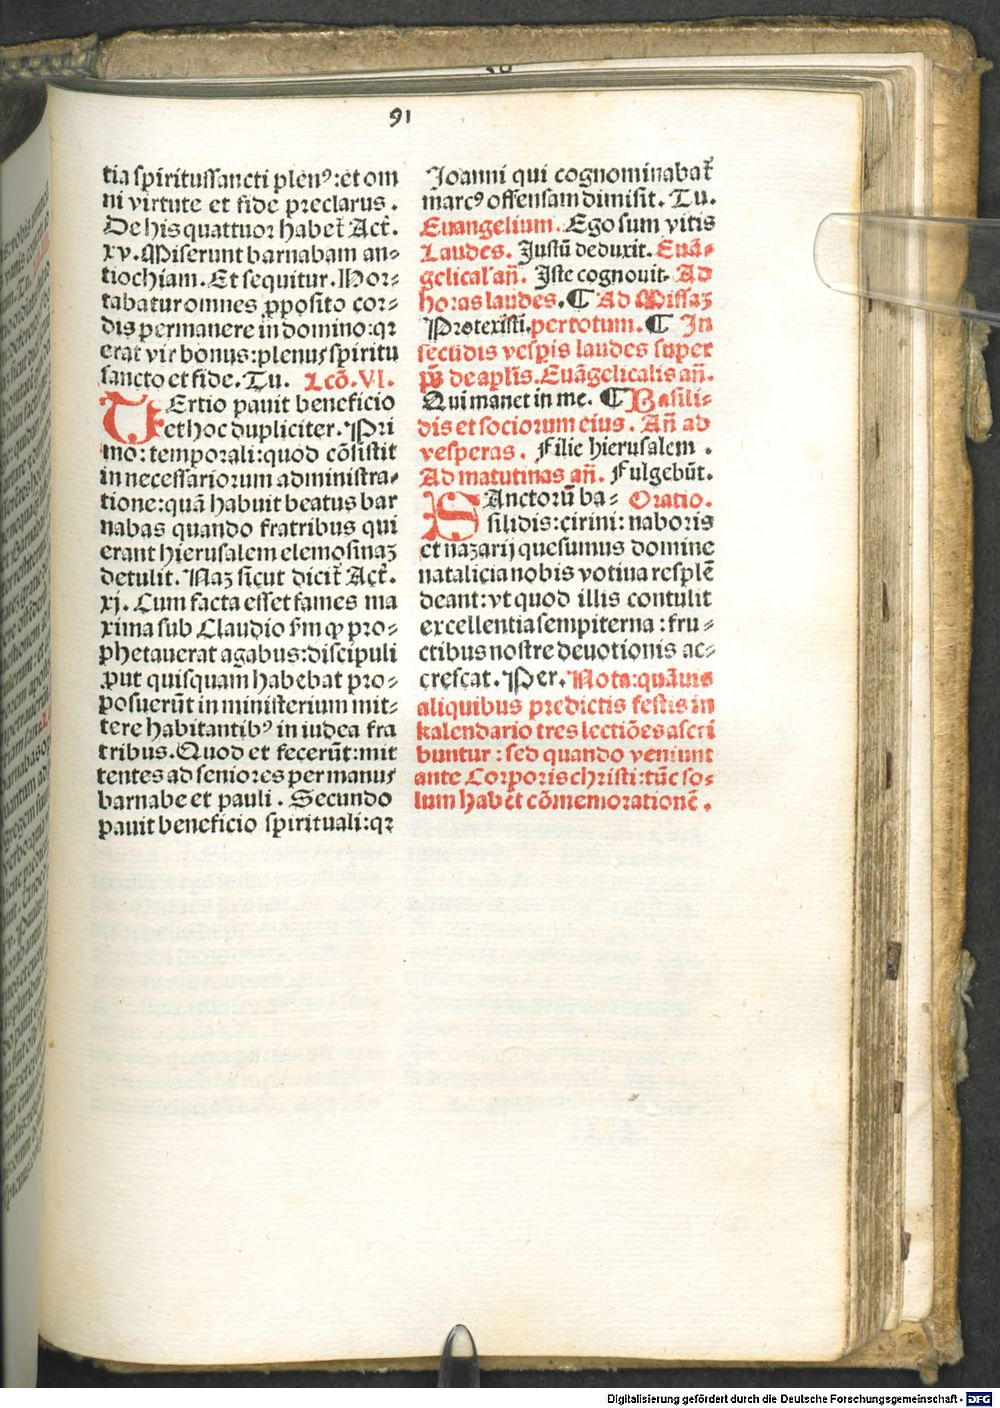 91
tia spiritussancti plenꝰ:et om
ni virtute et fide preclarus.
De his quattuor habet̃ Act̃.
xv. Miserunt barnabam an⸗
tiochiam. Et sequitur. Hor⸗
tabatur omnes ꝓposito cor⸗
dis permanere in domino:qꝛ
erat vir bonus:plenus spiritu
sancto et fide. Tu. Lcõ. VI.
TErtio pauit beneficio
et hoc dupliciter. Pri
mo: temporali:quod cõsistit
in necessariorum administra⸗
tione:quã habuit beatus bar
nabas quando fratribus qui
erant hierusalem elemosinaꝫ
detulit. Naꝫ sicut dicit̃ Act̃.
xj. Cum facta esset fames ma
xima sub Claudio s̃m ꝙ pro⸗
phetauerat agabus:discipuli
ꝓut quisquam habebat pro⸗
posuerũt in ministerium mit⸗
tere habitantibꝰ in iudea fra
tribus. Quod et fecerũt:mit
tentes ad seniores per manus
barnabe et pauli. Secundo
pauit beneficio spirituali:qꝛ
Joanni qui cognominabat̃
marcꝰ offensam dimisit. Tu.
Euangelium. Ego sum vitis
Laudes. Justũ deduxit. Euã⸗
gelical̃ añ. Jste cognouit. Ad
horas laudes. ¶ Ad Missaꝫ
Protexisti. per totum. ¶ In
secũdis vesp̃is laudes super
p̃s de apl̃is. Euãgelicalis añ.
Qui manet in me. ¶ Basili⸗
dis et sociorum eius. Añ ad
vesperas. Filie hierusalem.
Ad matutinas añ. Fulgebũt.
SAnctorũ ba⸗ Oratio.
silidis:cirini:naboris
et nazarij quesumus domine
natalicia nobis votiua resplẽ
deant:vt quod illis contulit
excellentia sempiterna:fru⸗
ctibus nostre deuotionis ac⸗
crescat. Per. Nota:quãuis
aliquibus predictis festis in
kalendario tres lectiões ascri
buntur:sed quando veniunt
ante Corporischristi:tũc so⸗
lum habẽt cõmemorationẽ.
Digitalisierung gefördert durch die Deutsche Forschungsgemeinschaft - DFG